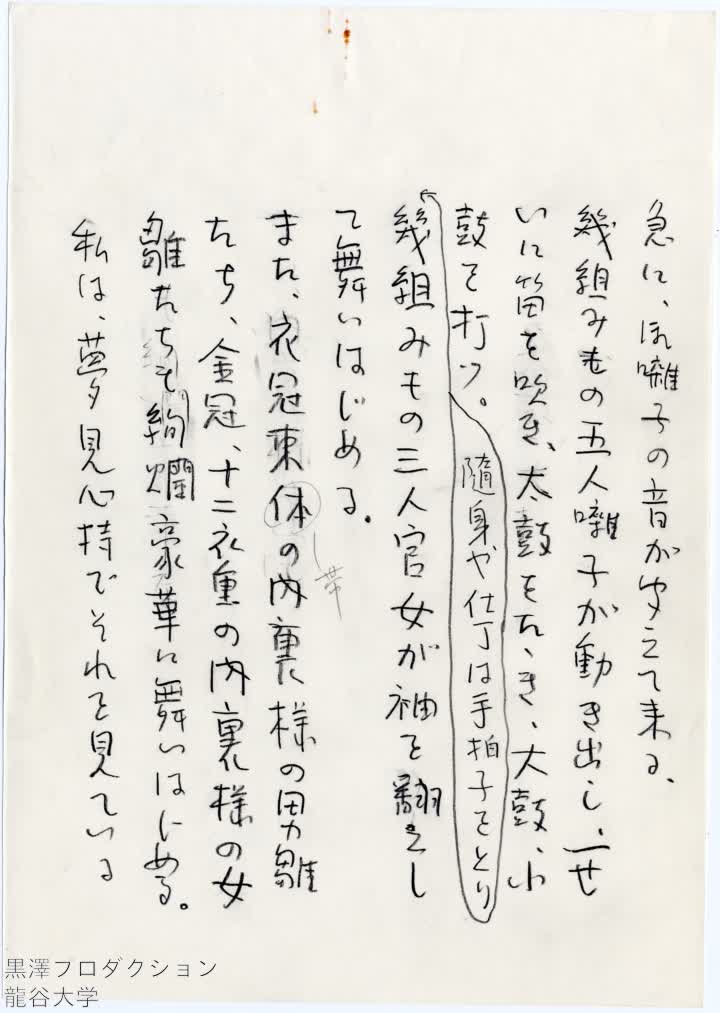 急に、お囃子の音が聞えて来る、
幾組みもの五人囃子が動き出し、一せ
いに笛を吹き、太鼓をたゝき、大鼓、小
鼓を打つ。随身や仕丁は手拍子をとり
幾組みもの三人官女が袖を翻えし
て舞いはじめる。
また、衣冠束体の内裏様の男雛
し帯
たち、金冠、十二衣重の内裏様の女
雛たちも絢爛豪華に舞いはじめる。
私は、夢見心持でそれを見ている
黒澤プロダクション
龍谷大学